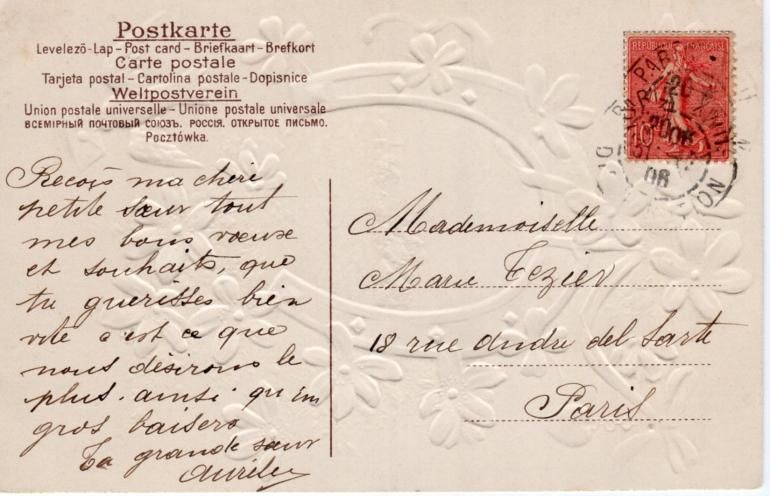 Postkarte
Levelező-Lap – Post card – Briefkaart – Brefkort
Carte postale
Tarjeta postal – Cartolina postale – Dopisnice
Weltpostverein
Union postale universelle – Unione postale universale
ВСЕМІРНЫЙ ПОЧТОВЫЙ СОЮЗЪ. РОССІЯ. ОТКРЫТОЕ ПИСЬМО.
Pocztówka.
REPUBLIQUE FRANÇAISE
10
PAR
08
Recois ma chéri
petite sœur tout
mes bons vœuxe
et souhaits, que
tu guerisses bien
vite c'est ce que
nous désirons le
plus. ainsi qu'un
gros baisers
Ta grande sœur
Mademoiselle
Marie Tezier
18 rue andre del Sarte
Paris